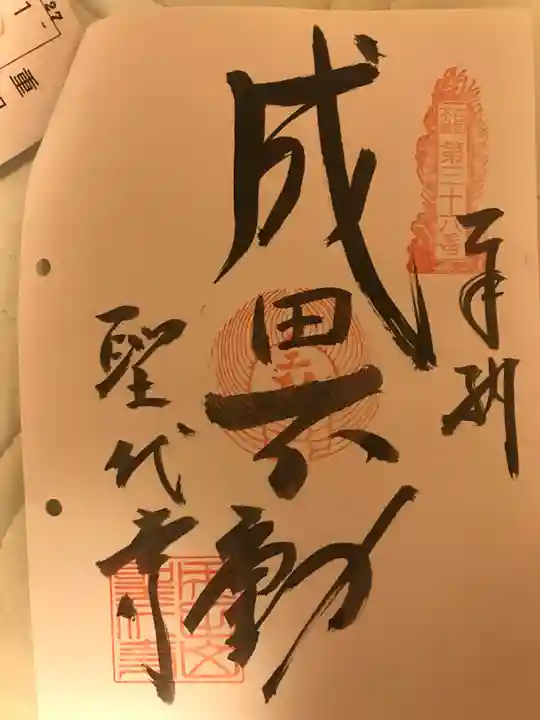 奉納
第三十六番
成田不動
聖代寺
27
1-
重